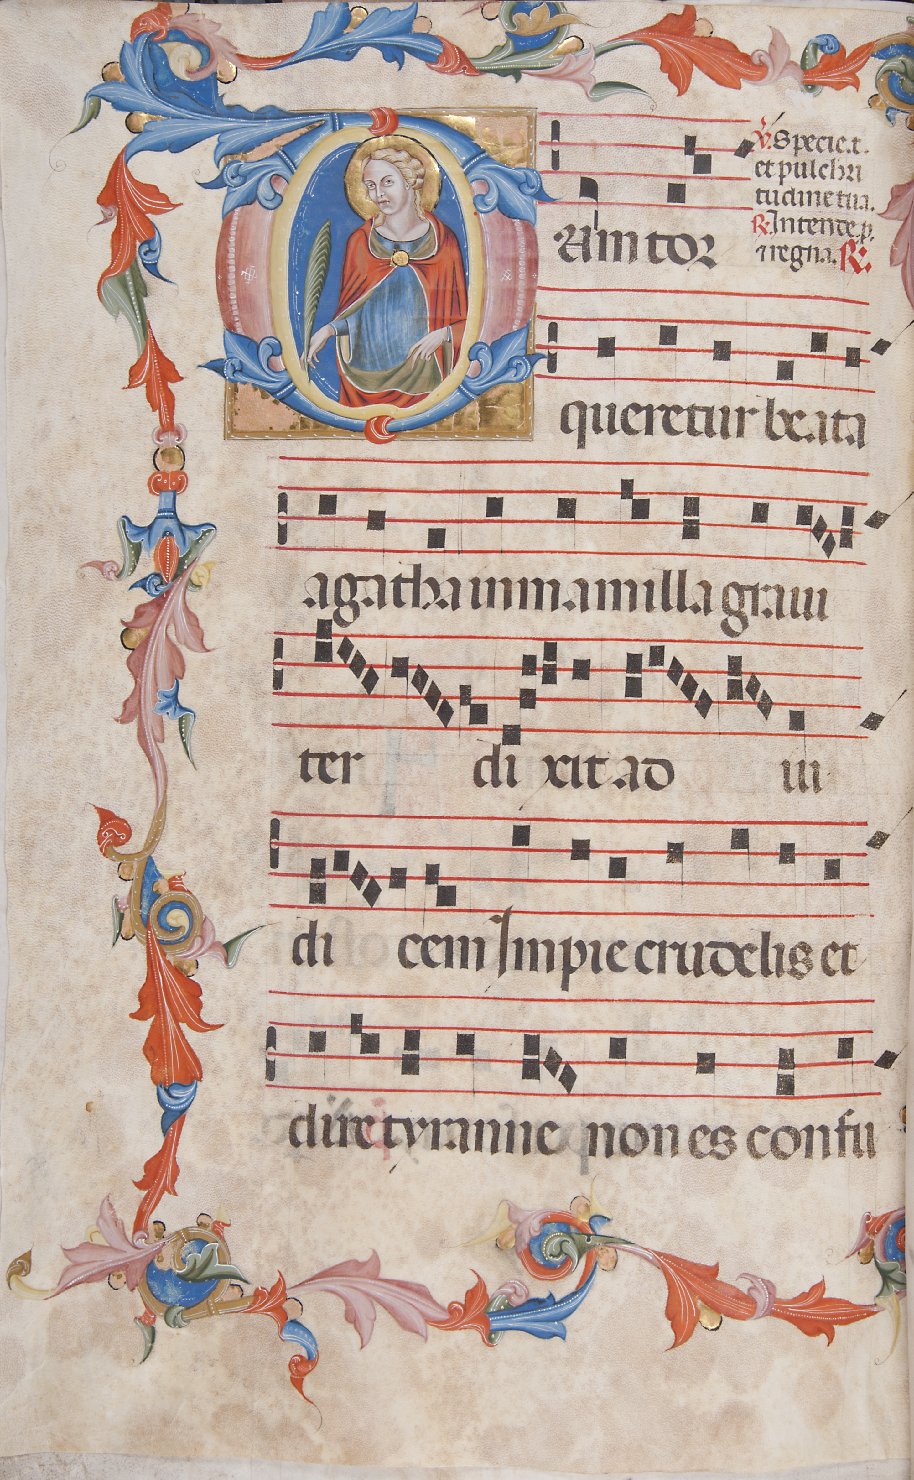 ℣. Specie. t.
et pulchri
tudine tua.
℟. Intende. p.
⁊ regna. ℟.
Dum tor
queretur beata
agatha in mamilla graui
ter dixit ad iu
dicem Impie crudelis et
dire tyranne non es confu